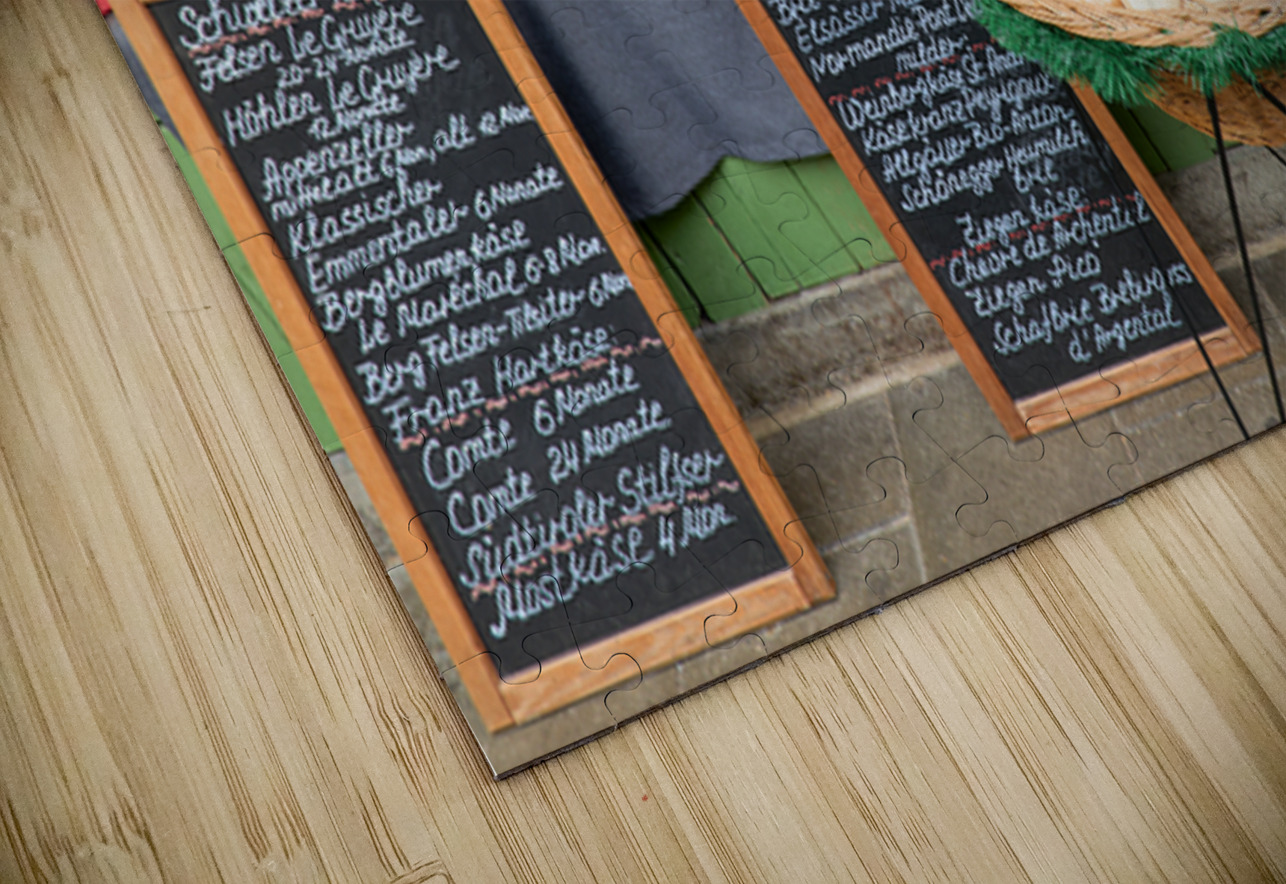 Schweizer
Felsen Le Gruyère
20-24 Monate
Höhlen Le Gruyère
12 Monate
Appenzeller
6 Mon, alt 12 Mon
Klassischer
Emmentaler 6 Monate
Bergblumenkäse
Le Maréchal 6-8 Mon.
Berg Felsen-Tilsiter 6 Mon
Franz Hartkäse:
Comté 6 Monate
Comte 24 Monate
Südtiroler Stilfser
Mostkäse 4 Mon.
Elsässer
Normandie Pont
milder
Weinbergkäse St. And
Käsekranz Peyrigoux
Allgäuer Bio-Anton
Schönegger Heumilch
brie
Ziegenkäse:
Chevre de Archental
Ziegen Pico
Schafbrie
d'Argental